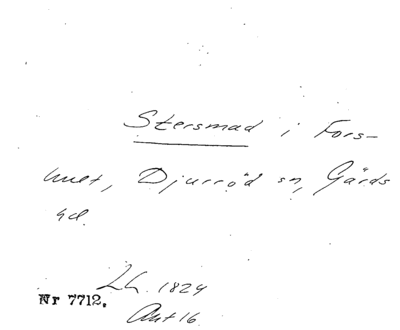 Stersmad i Fors-
hult, Djurröd sn, Gärds
hd.
Lh. 1824
Nr 7712.
Akt 16